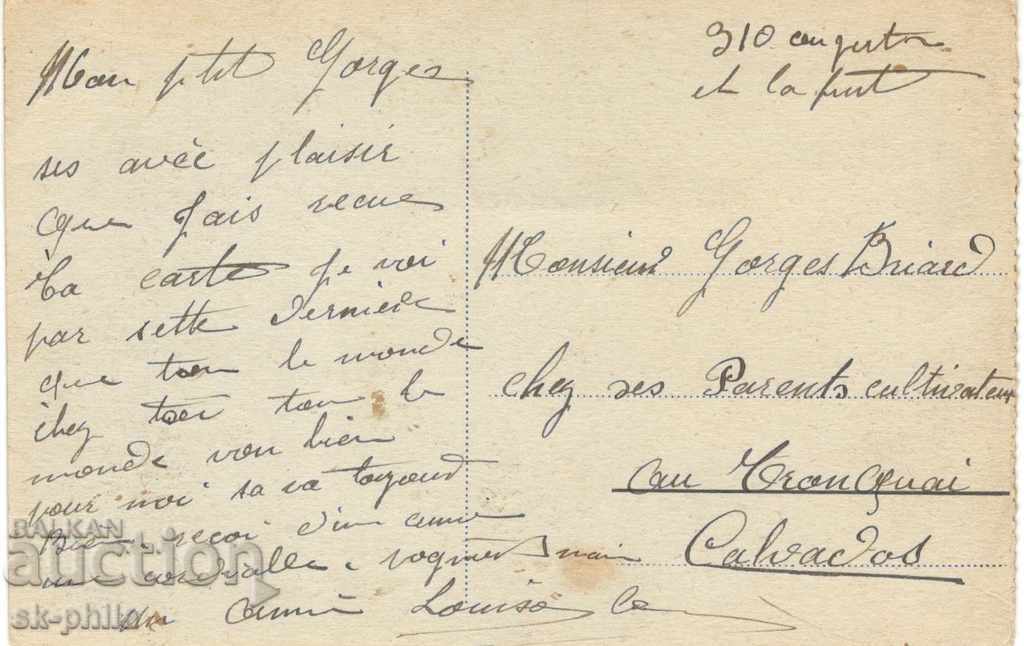 Mon ptit Gorges
ses avec plaisir
que jais recue
ta carte je voi
par sette dernière
que tou le monde
chez toi tou le
monde von bien
pour moi sa va toujour
Bien recoi d'un amie
une cordialle poignet main
ton amie Louise
310
et la
Monsieur Gorges Briard
chez ses Parents cultivateur
au Tronquai
Calvados
BALKAN
auction
sk-phila